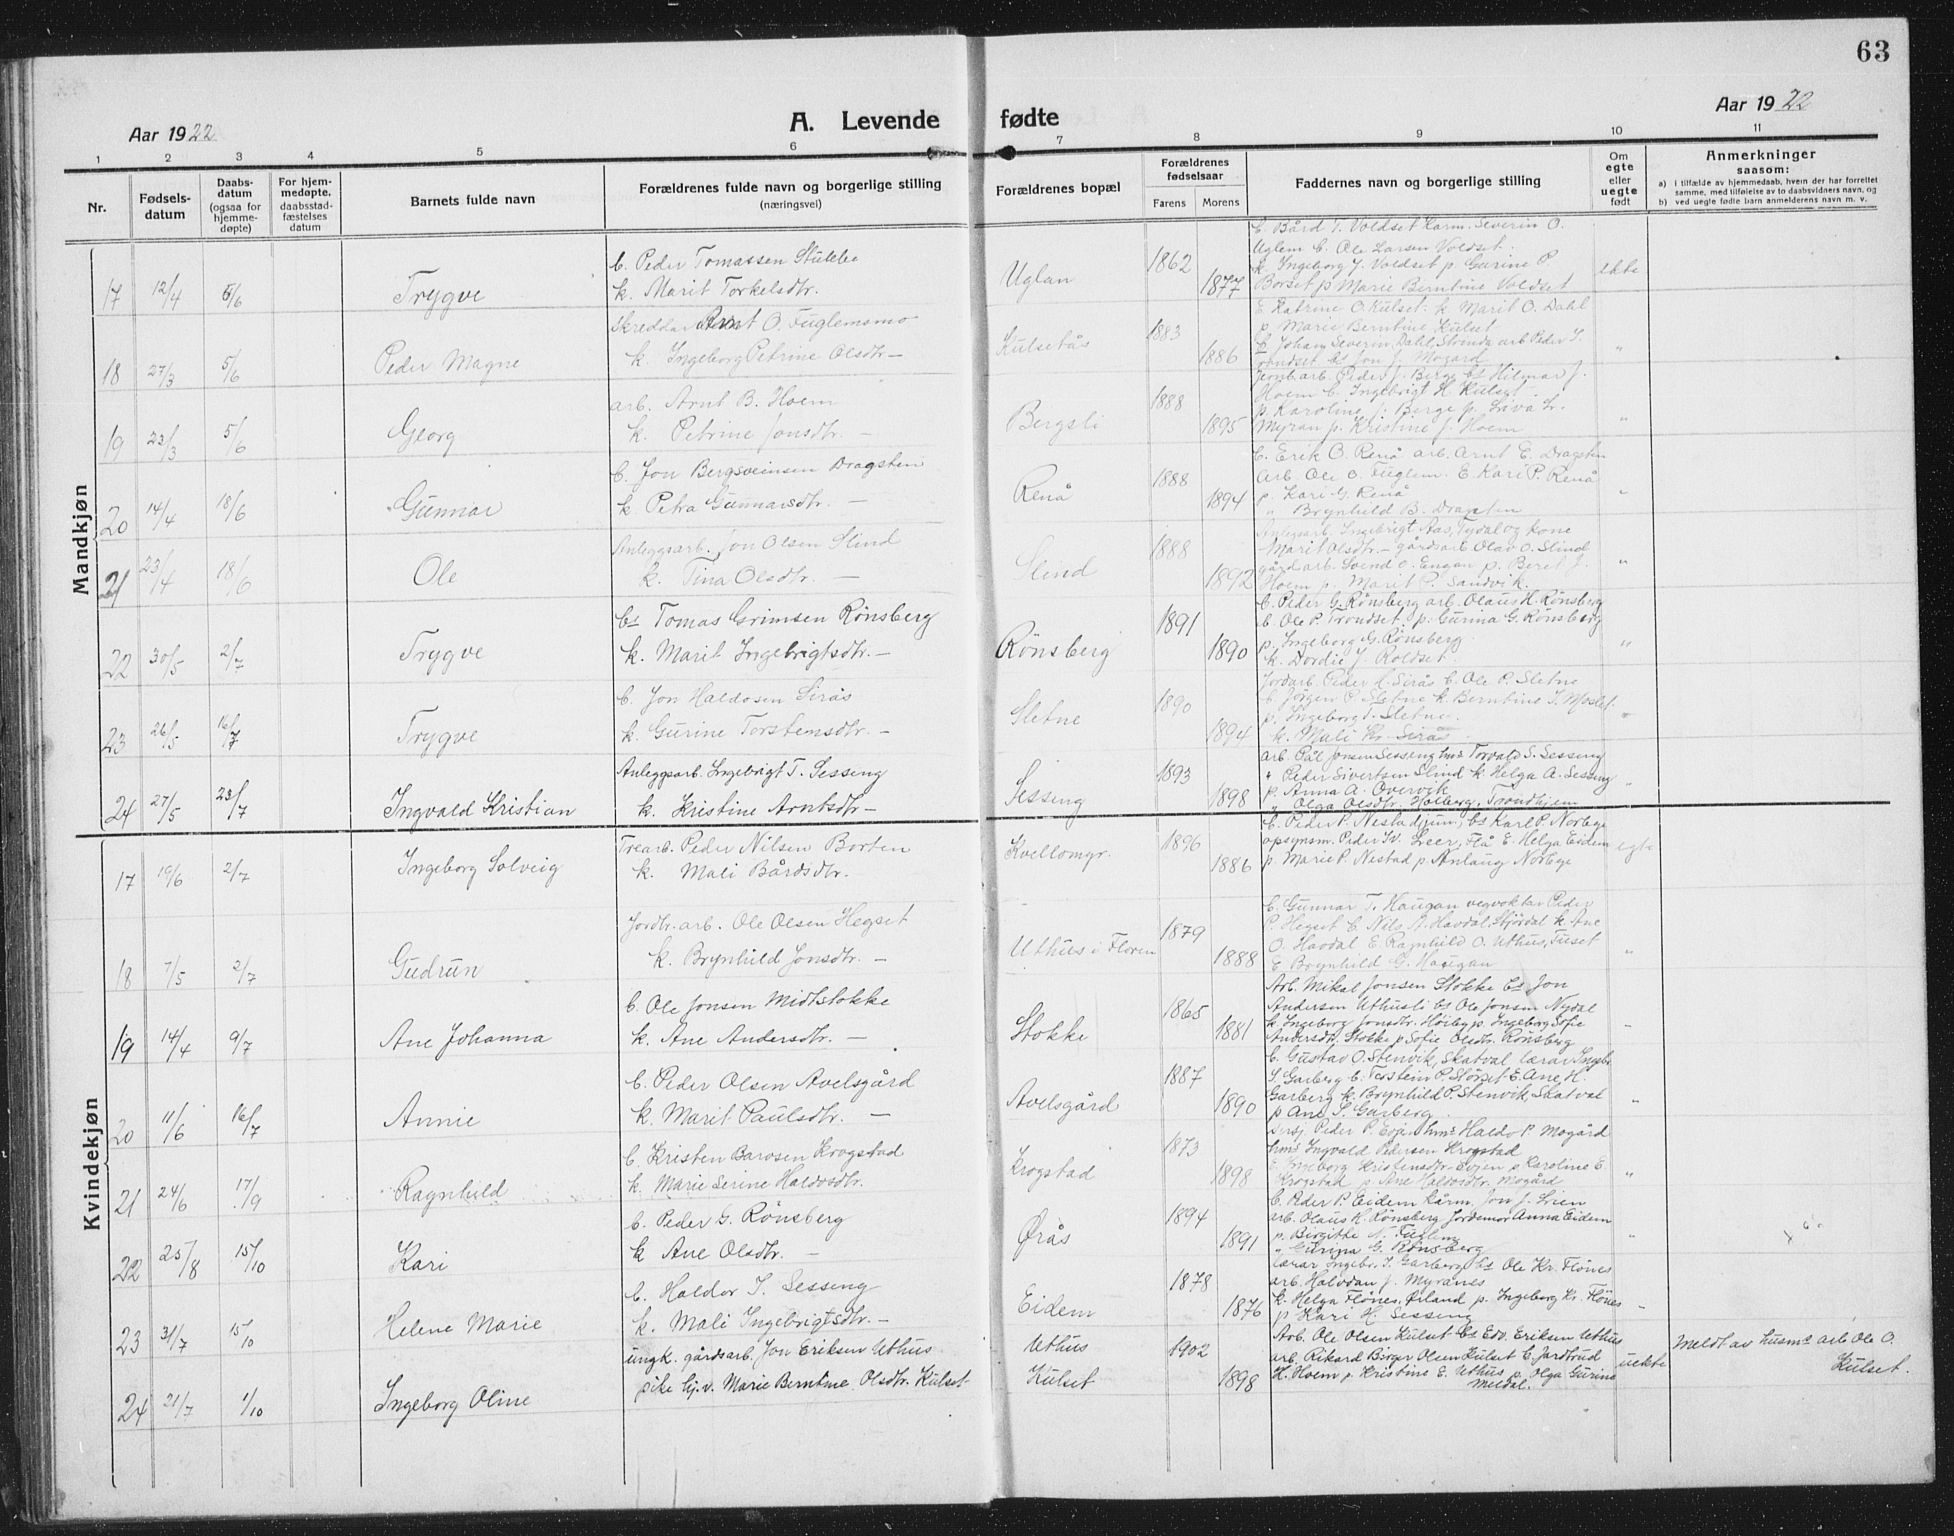 63
Aar 1922
A. Levende fødte
Aar 1922
1 2 3 4 5 6 7 8 9 10 11
Nr.
Fødsels-datum
Daabs-datum (ogsaa for hjemme-døpte)
For hjem-medøpte, daabsstad-fæstelses datum
Barnets fulde navn
Forældrenes fulde navn og borgerlige stilling (næringsvei)
Forældrenes bopæl
Forældrenes fødselsaar
Farens Morens
Faddernes navn og borgerlige stilling
Om egte eller uegte født
Anmerkninger saasom:
a) I tilfælde av hjemmedaab, hvem der har forrettet samme, med tilføielse av to daabsvidners navn, og
b) ved uegte fødte barn anmelderens navn m. v.
Mandkjøn
17 12/4 5/6 Trygve
b. Peder Tomassen Stubbe
k. Marit Torkelsdtr.
Uglan 1862 1877
b. Bård T. Voldset karm. Severin O.
Uglem b. Ole Larsen Voldset.
k. Ingeborg J. Voldset p Gurine P
Borset p Marie Berntine Voldset
ekte
18 27/3 5/6 Peder Magne
Skreddar Arnt O. Fuglemsmo
k. Ingeborg Petrine Olsdtr —
Kulsetås 1883 1886
E Katrine O. Kulset. k Marit O. Dahl
p. Marie Berntine Kulset
b Johan Severin Dahl, Strinda arb Peder S.
bs Jon J. Mogard
"
19 23/3 5/6 Georg
arb. Arnt B. Hoem
k. Petrine Jonsdtr. —
Bergsli 1888 1895
Jernb.arb. Peder J. Berge bs Hilmar J.
Hoem b. Ingebrigt H Kulset
p. Karoline J. Berge p.
Myran p. Kristine J. Hoem
"
20 14/4 18/6 Gunnar
b. Jon Bergsveinsen Dragsten
k. Petra Gunnarsdtr. —
Renå 1888 1894
b. Erik O. Renå arb. Arnt E. Dragsten
Arb Ole O. Fuglem. E Kari P. Renå
p. Kari G. Renå
" Brynhild B. Dragsten
"
21 23/4 18/6 Ole
Anleggsarb. Jon Olsen Slind
k. Tina Olsdtr. —
Slind 1888 1892
Anlegsarb. Ingebrigt Aas, Tydal og kone
Marit Olsdtr. — gårdsarb Olav O. Slind
gårdarb. Svend O. Engan p. Beret J.
Hoem p. Marit P. Sandvik.
"
22 30/5 2/7 Trygve
bs Tomas Grimsen Rönsberg
k. Marit Ingebrigtsdtr. —
Rönsberg 1891 1890
b. Peder G. Rönsberg arb. Olaus H. Rönsberg
b. Ole P. Trondset p. Gurina G. Rönsberg
p. Ingeborg G. Rönsberg
k. Dordie J. Roldset.
"
23 26/5 16/7 Trygve
b. Jon Haldosen Sirås
k. Gurine Torstensdtr. —
Sletne 1890 1894
Jordarb. Peder H. Sirås b. Ole P. Sletne
b Jörgen P. Sletne k Berntine J. Moslet.
p. Ingeborg T. Sletne.
k. Mali Kr. Sirås.
"
24 27/5 23/7 Ingvald Kristian
Anleggsarb. Ingebrigt T. Sesseng
k. Kristine Arntsdtr —
Sesseng 1893 1898
arb. Pål Jonsen Sesseng hms Torvald S. Sesseng
" Peder Sivertsen Slind k Helga A. Sesseng
p. Anna A. Overvik
" Olga Olsdtr. Hoiberg, Trondhjem
"
Kvindekjøn
17 19/6 2/7 Ingeborg Solveig
Trearb. Peder Nilsen Borten
k. Mali Bårdsdtr.
Kvellomyr. 1896 1886
b. Peder P. Nestad jun, bs Karl P. Norbye
opsynsm. Peder Leer, Flå E. Helga Eidem
p. Marie P. Nestad p Anlaug Norbye
egte
18 7/5 2/7 Gudrun
Jordbr. arb. Ole Olsen Hegset
k. Brynhild Jonsdtr. —
Uthus i Floren 1879 1888
b. Gunnar T. Haugan vegvoktar Peder
P. Hegset b Nils A. Havdal, Stjørdal k Ane
O. Havdal E. Ragnhild O. Uthus, Fuset
E Brynhild G. Haugan
"
19 14/4 9/7 Ane Johanna
b. Ole Jonsen Midtstokke
k. Ane Andersdtr. —
Stokke 1865 1881
Arb. Mikal Jonsen Stokke bs Jon
Andersen Uthusli bs Ole Jonsen Nydal
k Ingeborg Jonsdtr. Höiby p. Ingeborg Sofie
Andersdtr. Stokke p Sofie Olsdtr. Rönsberg
"
20 11/6 16/7 Annie
b. Peder Olsen Avelsgård
k. Marit Paulsdtr. —
Avelsgård 1887 1890
b. Gustav O. Stenvik, Skatval lærar Ingebr.
S. Garberg b. Torstein P. Störset E. Ane H.
Garberg k. Brynhild P. Stenvik Skatval
p Ane S. Garberg.
"
21 24/6 17/9 Ragnhild
b. Kristen Barosen Krogstad
k. Marie Serine Haldosdtr.
Krogstad 1873 1898
sersj Peder P. Evjen hms Haldo P. Mogård
hms Ingvald Pedersen Krogstad
E. Ingeborg Kristensdtr Evjen p Karoline E.
Krogstad p Ane Haldosdtr. Mogård
"
22 25/8 15/10 Kari
b. Peder G. Rönsberg
k Ane Olsdtr. —
Ørås 1894 1891
b. Peder P. Eidem kårm. Jon J. Lien
arb. Olaus H. Rönsberg Jordemor Anna Eidem
p. Birgitte Fuglem
" Gurina G. Rönsberg
"
23 31/7 15/10 Helene Marie
b. Haldor T. Sesseng
k. Mali Ingebrigtsdtr. —
Eidem 1878 1876
lærar Ingebr. S. Garberg bs Ole Kr. Flönes
arb. Halvdan J. Myranes
k. Helga Flönes, Ørland p. Ingeborg Kr. Flönes
p Kari H. Sesseng
"
24 21/7 1/10 Ingeborg Oline
ungk. gårdsarb. Jon Eriksen Uthus
pike hj.v. Marie Berntine Olsdtr. Kulset
Uthus 1902
Kulset 1898
Arb. Ole Olsen Kulset bs Edv. Eriksen Uthus
arb. Rikard Birger Olsen Kulset E. Jardtrud
H. Hoem p. Kristine E. Uthus p. Olga Gurine
Meldal.
uekte
Meldt av husm. arb Ole O.
Kulset.